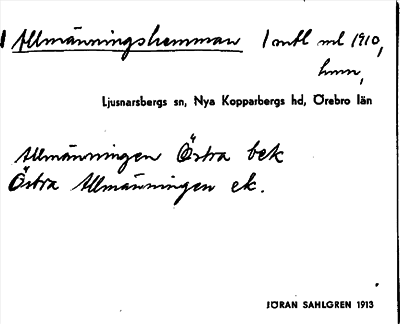 Allmänningshemman 1 mtl ml 1910,
hmn,
Ljusnarsbergs sn, Nya Kopparbergs hd, Örebro län
Allmänningen Östra bek
Östra Allmänningen ek.
JÖRAN SAHLGREN 1913